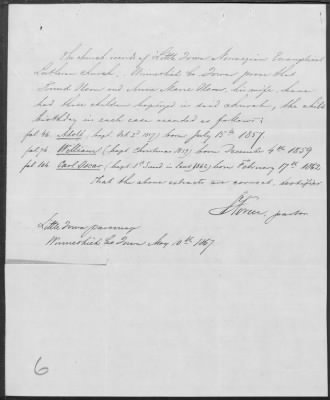 The church records of Little Iowa Norwegian Evangelical
Lutheran Church, Winneshiek Co Iowa, prove that
and Anna Marie his wife, have
had three children baptized in said church, the childs
birthday in each case recorded as follows:
fol 46. Adolf, (bapt Oct 2d 1857) born July 15th 1857.
fol 76 William (bapt Christmas 1859) born December 4th 1859
fol 106 Carl Oscar (bapt 1st Sund in Lent 1862) born February 17th 1862.
That the above extracts are correct, certifies
pastor
Little Iowa parsonage
Winneshiek Co Iowa May 10th 1867.
6